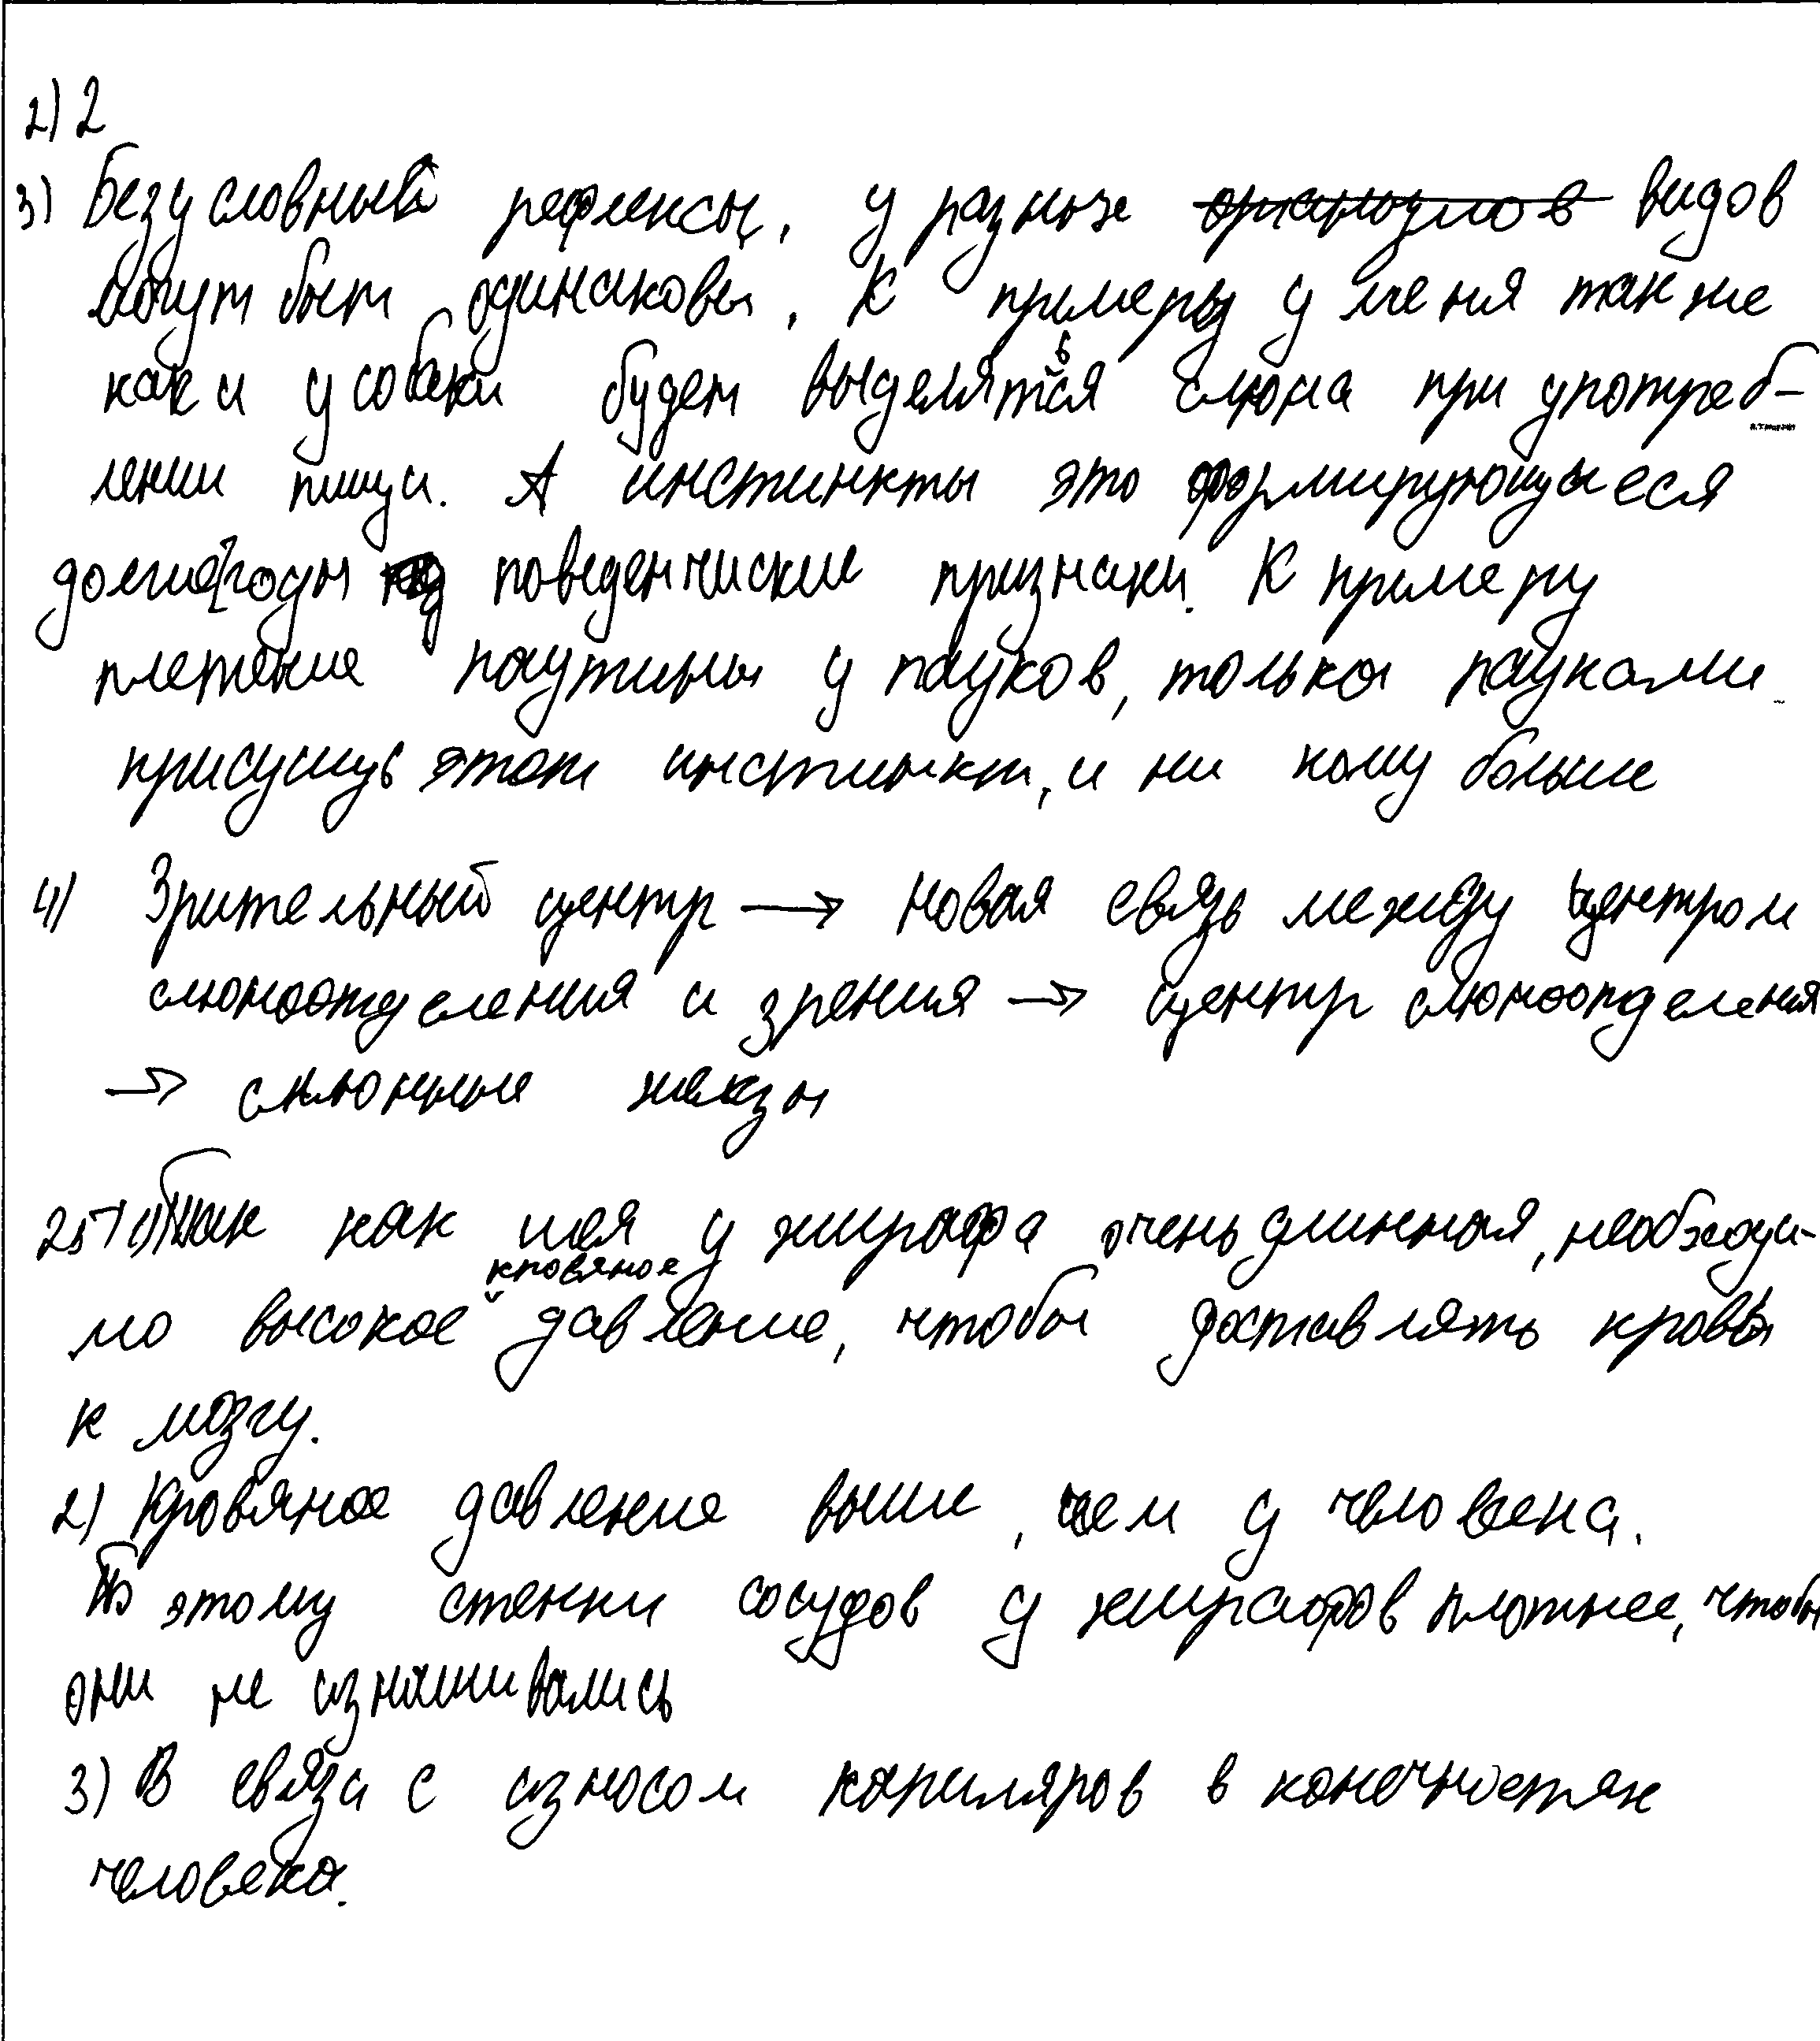 2) 2
3) Безусловный рефлексы, у разных организмов видов
могут быт одинаковы, к примеру у меня так же
как и у собаки будет выделяться слюна при употреб-
лении пищи. А инстинкты это формирующиеся
долгие годы поведенчиские признаки. К примеру
плетение паутины у пауков, только пауками
присущь этот инстинкт, и ни кому больше
4) Зрительный центр → новая связь между центром
слюноотделения и зрения → центр слюноотделения
→ слюнные желзы
25 1) Так как шея у жирафа очень длинная, необходи-
мо высокое кровяное давление, чтобы доставлять кровь
к мозгу.
2) Кровяное давление выше, чем у человека.
По этому стенки сосудов у жирафов плотнее, чтобы
они не изнашивались
3) В связи с износом капиляров в конечностях
человека.